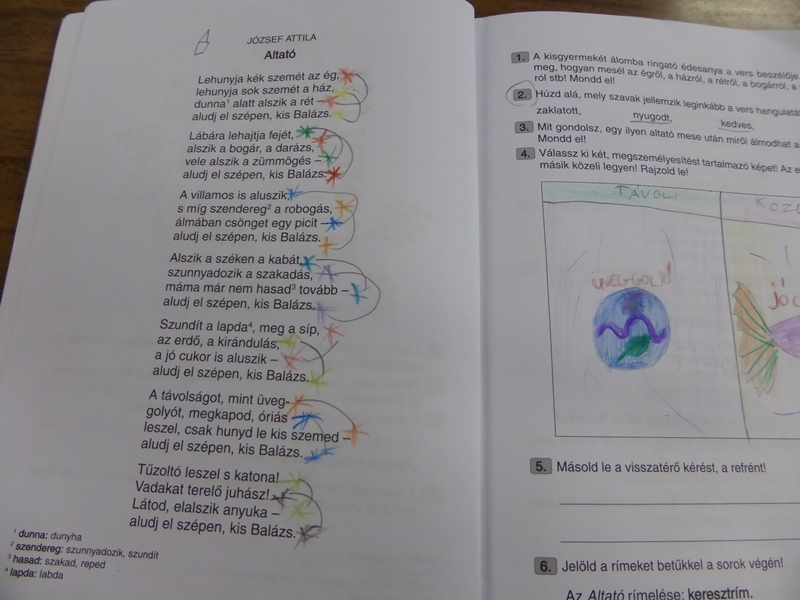 JÓZSEF ATTILA
Altató
Lehunyja kék szemét az ég,
lehunyja sok szemét a ház,
dunna¹ alatt alszik a rét –
aludj el szépen, kis Balázs.
Lábára lehajtja fejét,
alszik a bogár, a darázs,
vele alszik a zümmögés –
aludj el szépen, kis Balázs.
A villamos is aluszik,
s míg szendereg² a robogás,
álmában csönget egy picit –
aludj el szépen, kis Balázs.
Alszik a széken a kabát,
szunnyadozik a szakadás,
máma már nem hasad³ tovább –
aludj el szépen, kis Balázs.
Szundít a lapda⁴, meg a síp,
az erdő, a kirándulás,
a jó cukor is aluszik –
aludj el szépen, kis Balázs.
A távolságot, mint üveg-
golyót, megkapod, óriás
leszel, csak hunyd le kis szemed –
aludj el szépen, kis Balázs.
Tűzoltó leszel s katona!
Vadakat terelő juhász!
Látod, elalszik anyuka –
aludj el szépen, kis Balázs.
¹ dunna: dunyha
² szendereg: szunnyadozik, szundít
³ hasad: szakad, reped
⁴ lapda: labda
1. A kisgyermekét álomba ringató édesanya a vers beszélője
meg, hogyan mesél az égről, a házról, a rétről, a bogárról, a
ról stb! Mondd el!
2. Húzd alá, mely szavak jellemzik leginkább a vers hangulatá
zaklatott, nyugodt, kedves,
3. Mit gondolsz, egy ilyen altató mese után miről álmodhat a
Mondd el!
4. Válassz ki két, megszemélyesítést tartalmazó képet! Az e
másik közeli legyen! Rajzold le!
TÁVOLI KÖZE
ÜVEGGOLYÓ
JÓ C
5. Másold le a visszatérő kérést, a refrént!
6. Jelöld a rímeket betűkkel a sorok végén!
Az Altató rímelése: keresztrím.